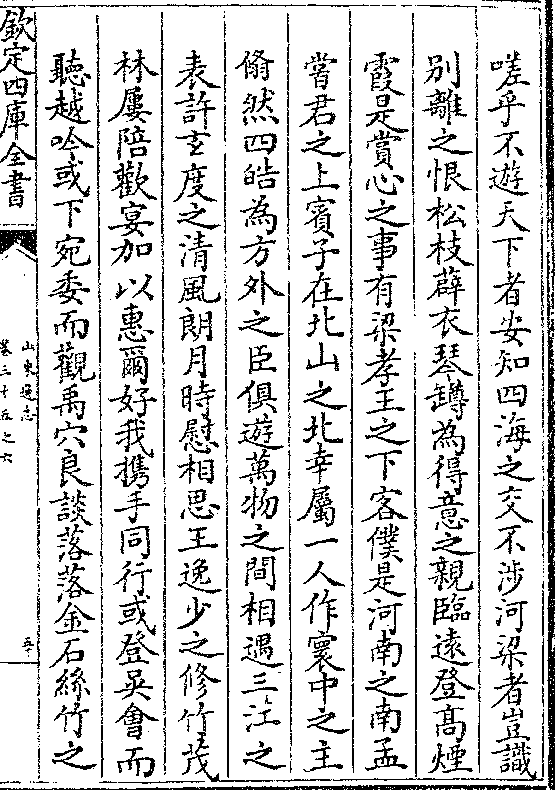 嗟乎不遊天下者安知四海之交不涉河梁者豈識
别離之恨松枝薜衣琴罇為得意之親臨遠登髙煙
霞是賞心之事有梁孝王之下客僕是河南之南孟
嘗君之上賓子在北山之北幸屬一人作寰中之主
翛然四皓為方外之臣俱遊萬物之間相遇三江之
表許𤣥度之清風朗月時慰相思王逸少之修竹茂
林屢陪歡宴加以惠爾好我携手同行或登吳會而
聽越吟或下宛委而觀禹穴良談落落金石絲竹之
欽定四庫全書
山東通志
卷三十五之六